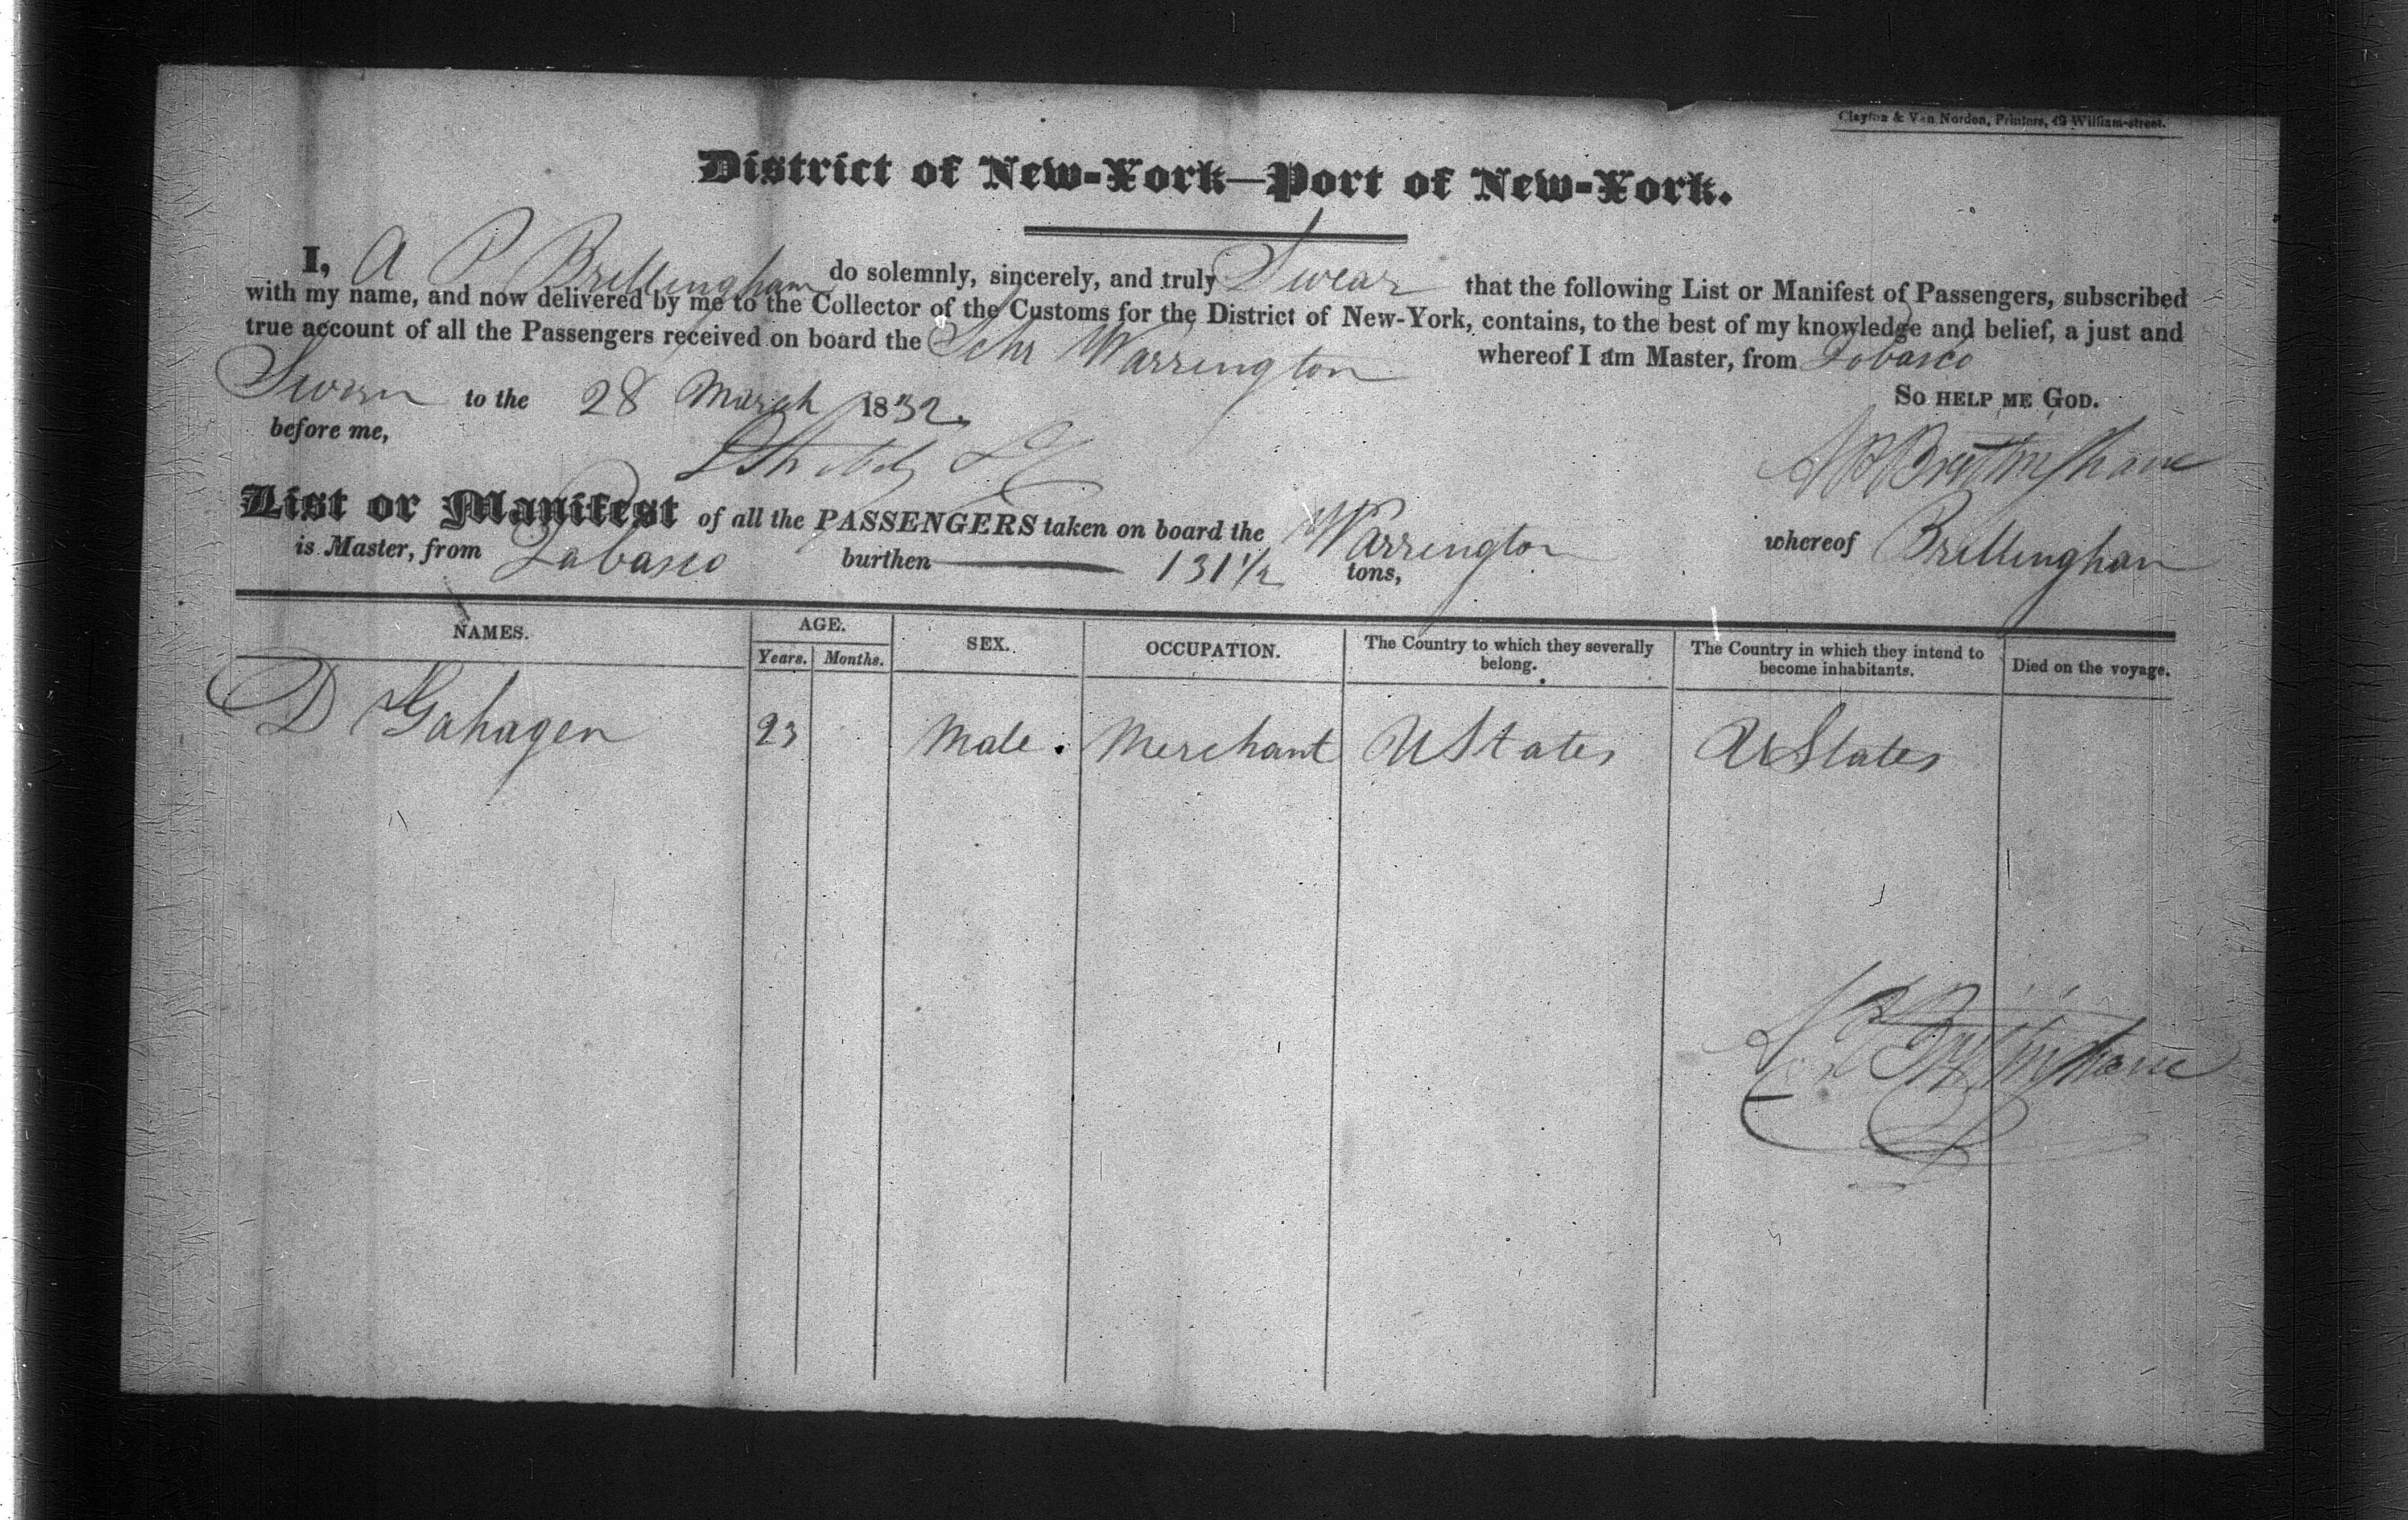 Clayton & Van Norden, Printers, 49 William-street.
District of New-York—Port of New-York.
I, A P Brillingham do solemnly, sincerely, and truly Swear that the following List or Manifest of Passengers, subscribed
with my name, and now delivered by me to the Collector of the Customs for the District of New-York, contains, to the best of my knowledge and belief, a just and
true account of all the Passengers received on board the Schr Warrington whereof I am Master, from Tobasco
Sworn to the 28 March 1832 So HELP ME GOD.
before me,
A P Brittingham
List or Manifest of all the PASSENGERS taken on board the Warrington whereof Brillingham
is Master, from Tabasco burthen 131 1/2 tons,
NAMES. AGE. Years. Months. SEX. OCCUPATION. The Country to which they severally belong. The Country in which they intend to become inhabitants. Died on the voyage.
D Gahagen 23 Male. Merchant UStates UStates
A P Brittingham